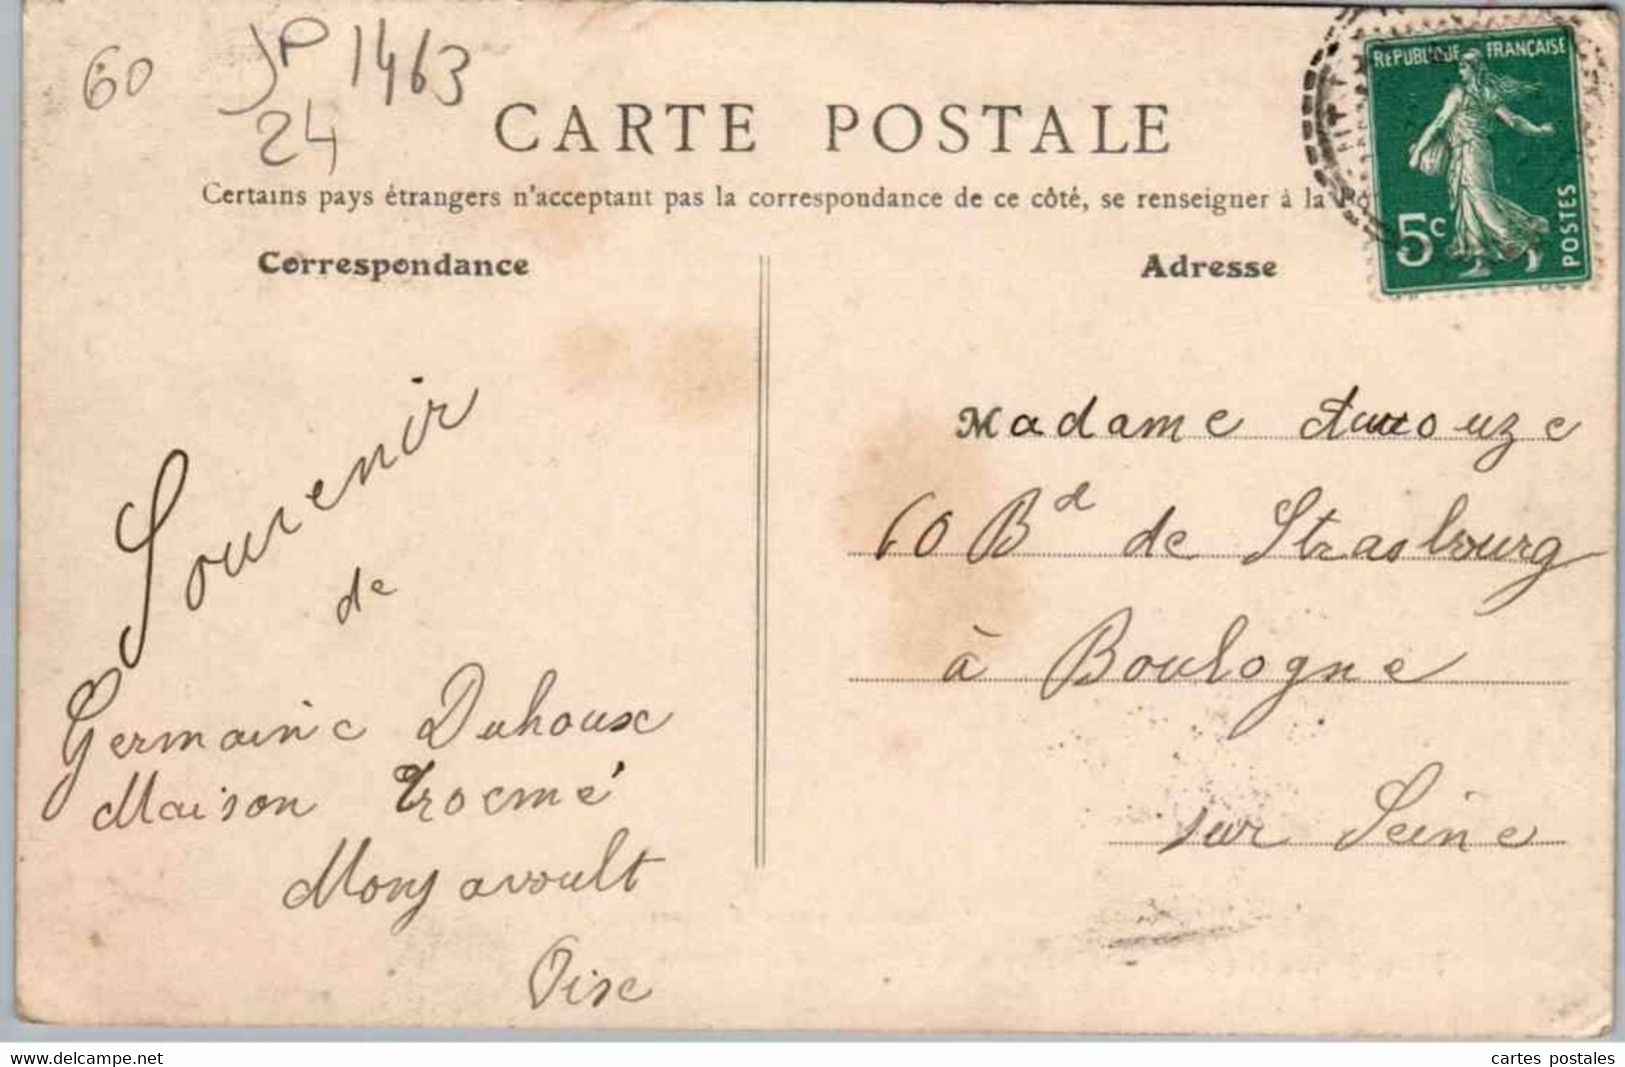 60
JP 1463
24
CARTE POSTALE
Certains pays étrangers n'acceptant pas la correspondance de ce côté, se renseigner à la Po
Correspondance
Adresse
REPUBLIQUE FRANÇAISE
5c
POSTES
Souvenir
de
Germaine Duhoux
Maison Trocmé
Monjavoult
Oise
Madame
60 Bd de Strasbourg
à Boulogne
sur Seine
www.delcampe.net
cartes postales